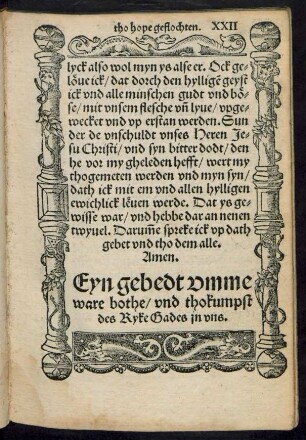 tho hope geflochten. XXII
lyck also wol myn ys alse er. Ock ge-
löue ick/ dat dorch den hylligē geyst
ick vnd alle minschen gudt vnd bö-
se/ mit vnsem flesche vñ lyue/ vpge-
wecket vnd vp erstan werden. Sun
der de vnschuldt vnses Heren Je-
su Christi/ vnd syn bitter dodt/ den
he vor my gheleden hefft/ wert my
thogemeten werden vnd myn syn/
dath ick mit em vnd allen hylligen
ewichlick lëuen werde. Dat ys ge-
wisse war/ vnd hebbe dar an nenen
twyuel. Darum̃e spreke ick vp dath
gebet vnd tho dem alle.
Amen.
Eyn gebedt vmme
ware bothe/ vnd thokumpst
des Ryke Gades jn vns.